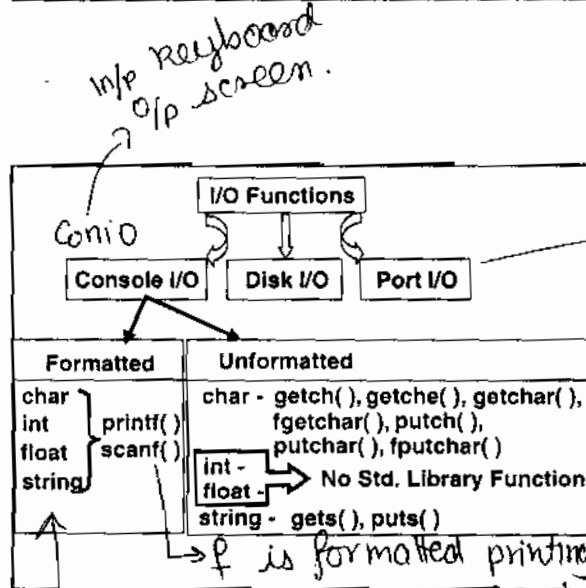 in/p keyboard
o/p screen.
I/O Functions
Conio
Console I/O Disk I/O Port I/O
Formatted Unformatted
char
int
float
string
printf( )
scanf( )
char - getch( ), getche( ), getchar( ),
fgetchar( ), putch( ),
putchar( ), fputchar( )
int -
float -
No Std. Library Function
string - gets( ), puts( )
f is formatted printing